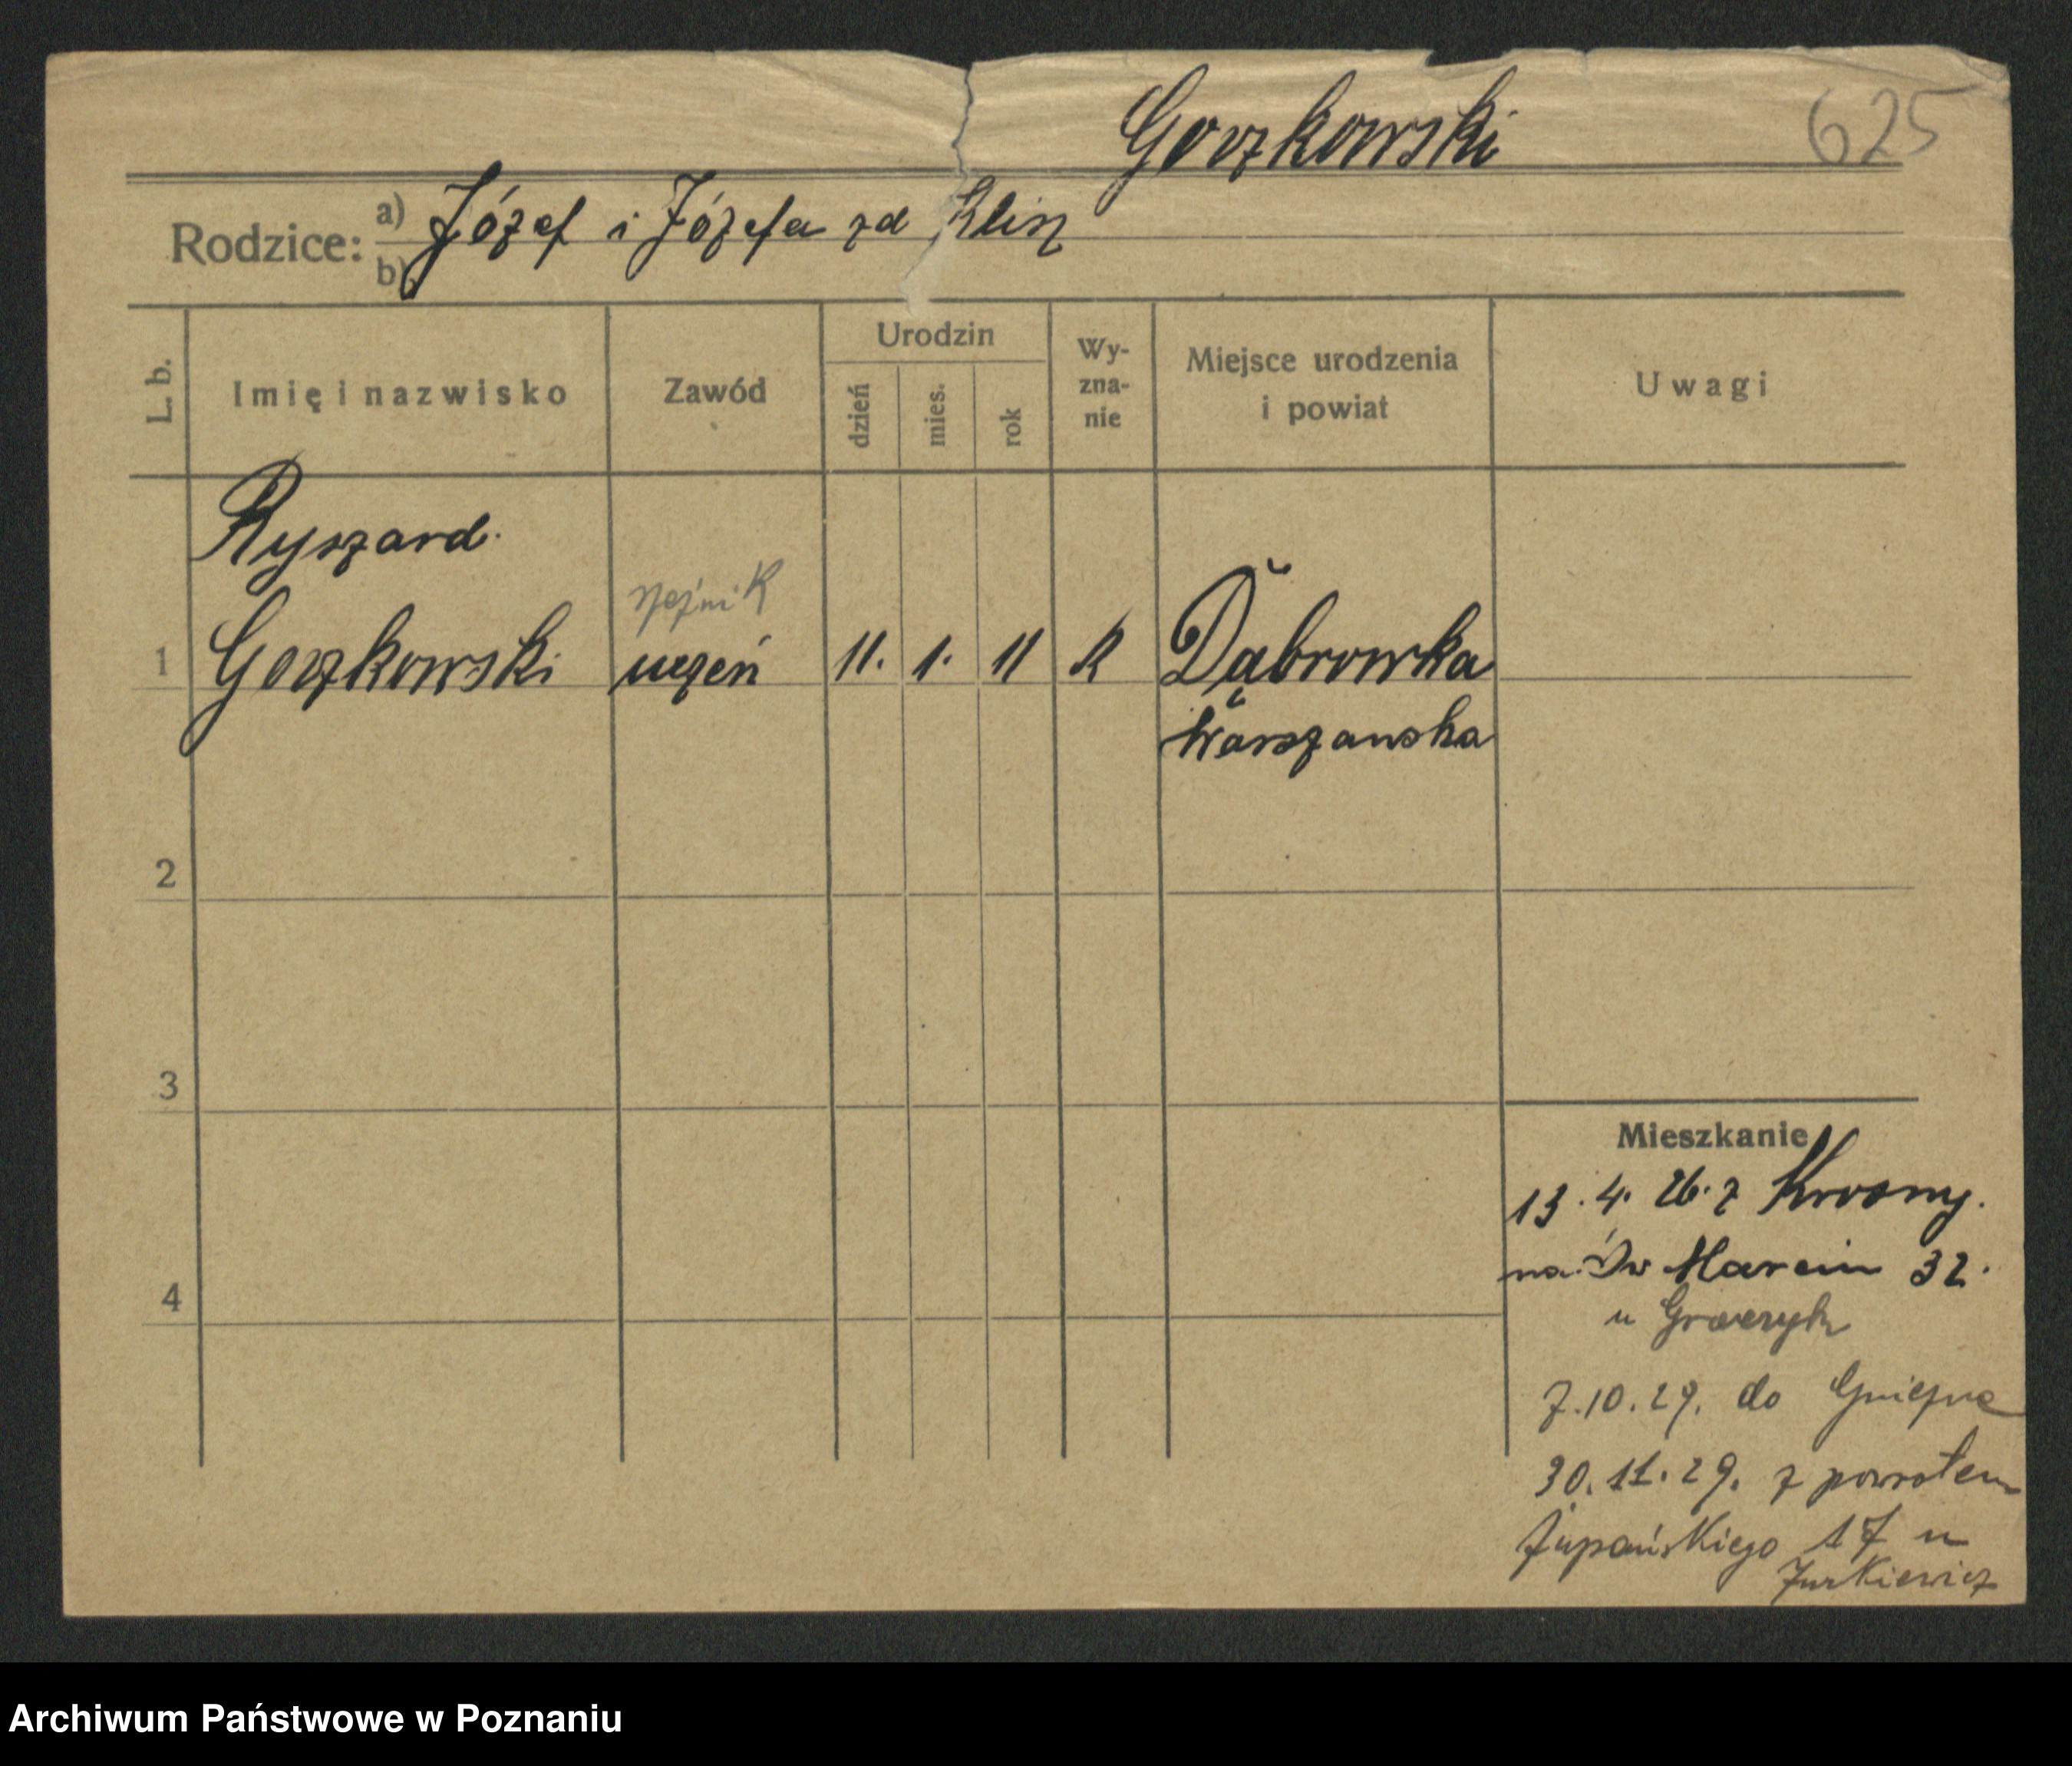 Gorzkowski 625
Rodzice: a) Józef i Józefa zd Klisz
b)
L. b. Imię i nazwisko Zawód Urodzin dzień mies. rok Wy-zna-nie Miejsce urodzenia i powiat Uwagi
Ryszard.
1 Gorzkowski uczeń 11. 1. 11 R Dąbrowka
Warszawska
2
3
4
Mieszkanie
13. 4. 26. z
na Św Marcin 32.
u
7.10.29. do Gniezna
30.11.29. z powrotem
Żupańskiego 17 u
Jurkiewicz
Archiwum Państwowe w Poznaniu